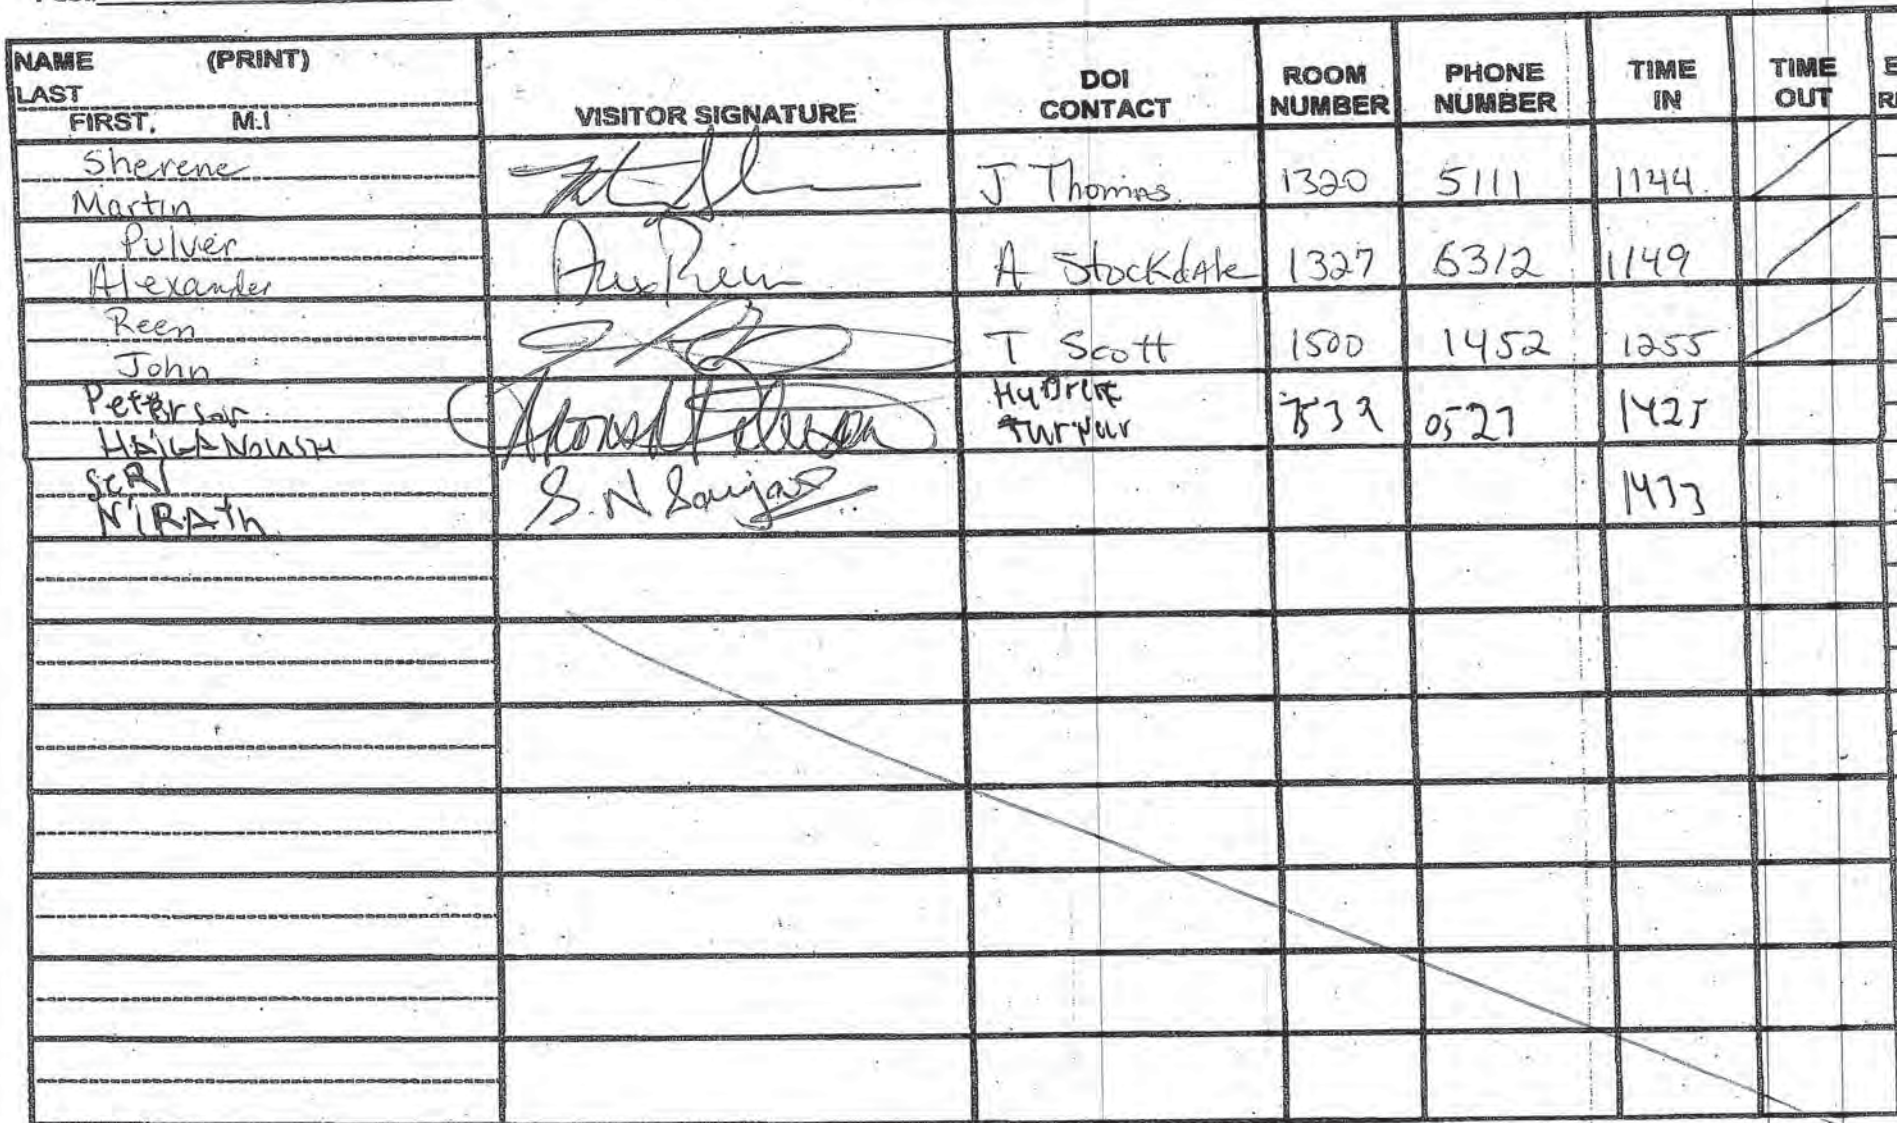 NAME (PRINT)
LAST
FIRST. M.I
VISITOR SIGNATURE
DOI
CONTACT
ROOM
NUMBER
PHONE
NUMBER
TIME
IN
TIME
OUT
Sherene
Martin
J Thomas
1320
5111
1144
Pulver
Alexander
A Stockdale
1327
6312
1149
Reen
John
T Scott
1500
1452
1255
Peterson
0527
1425
Seri
NIRATH
S.N
1433